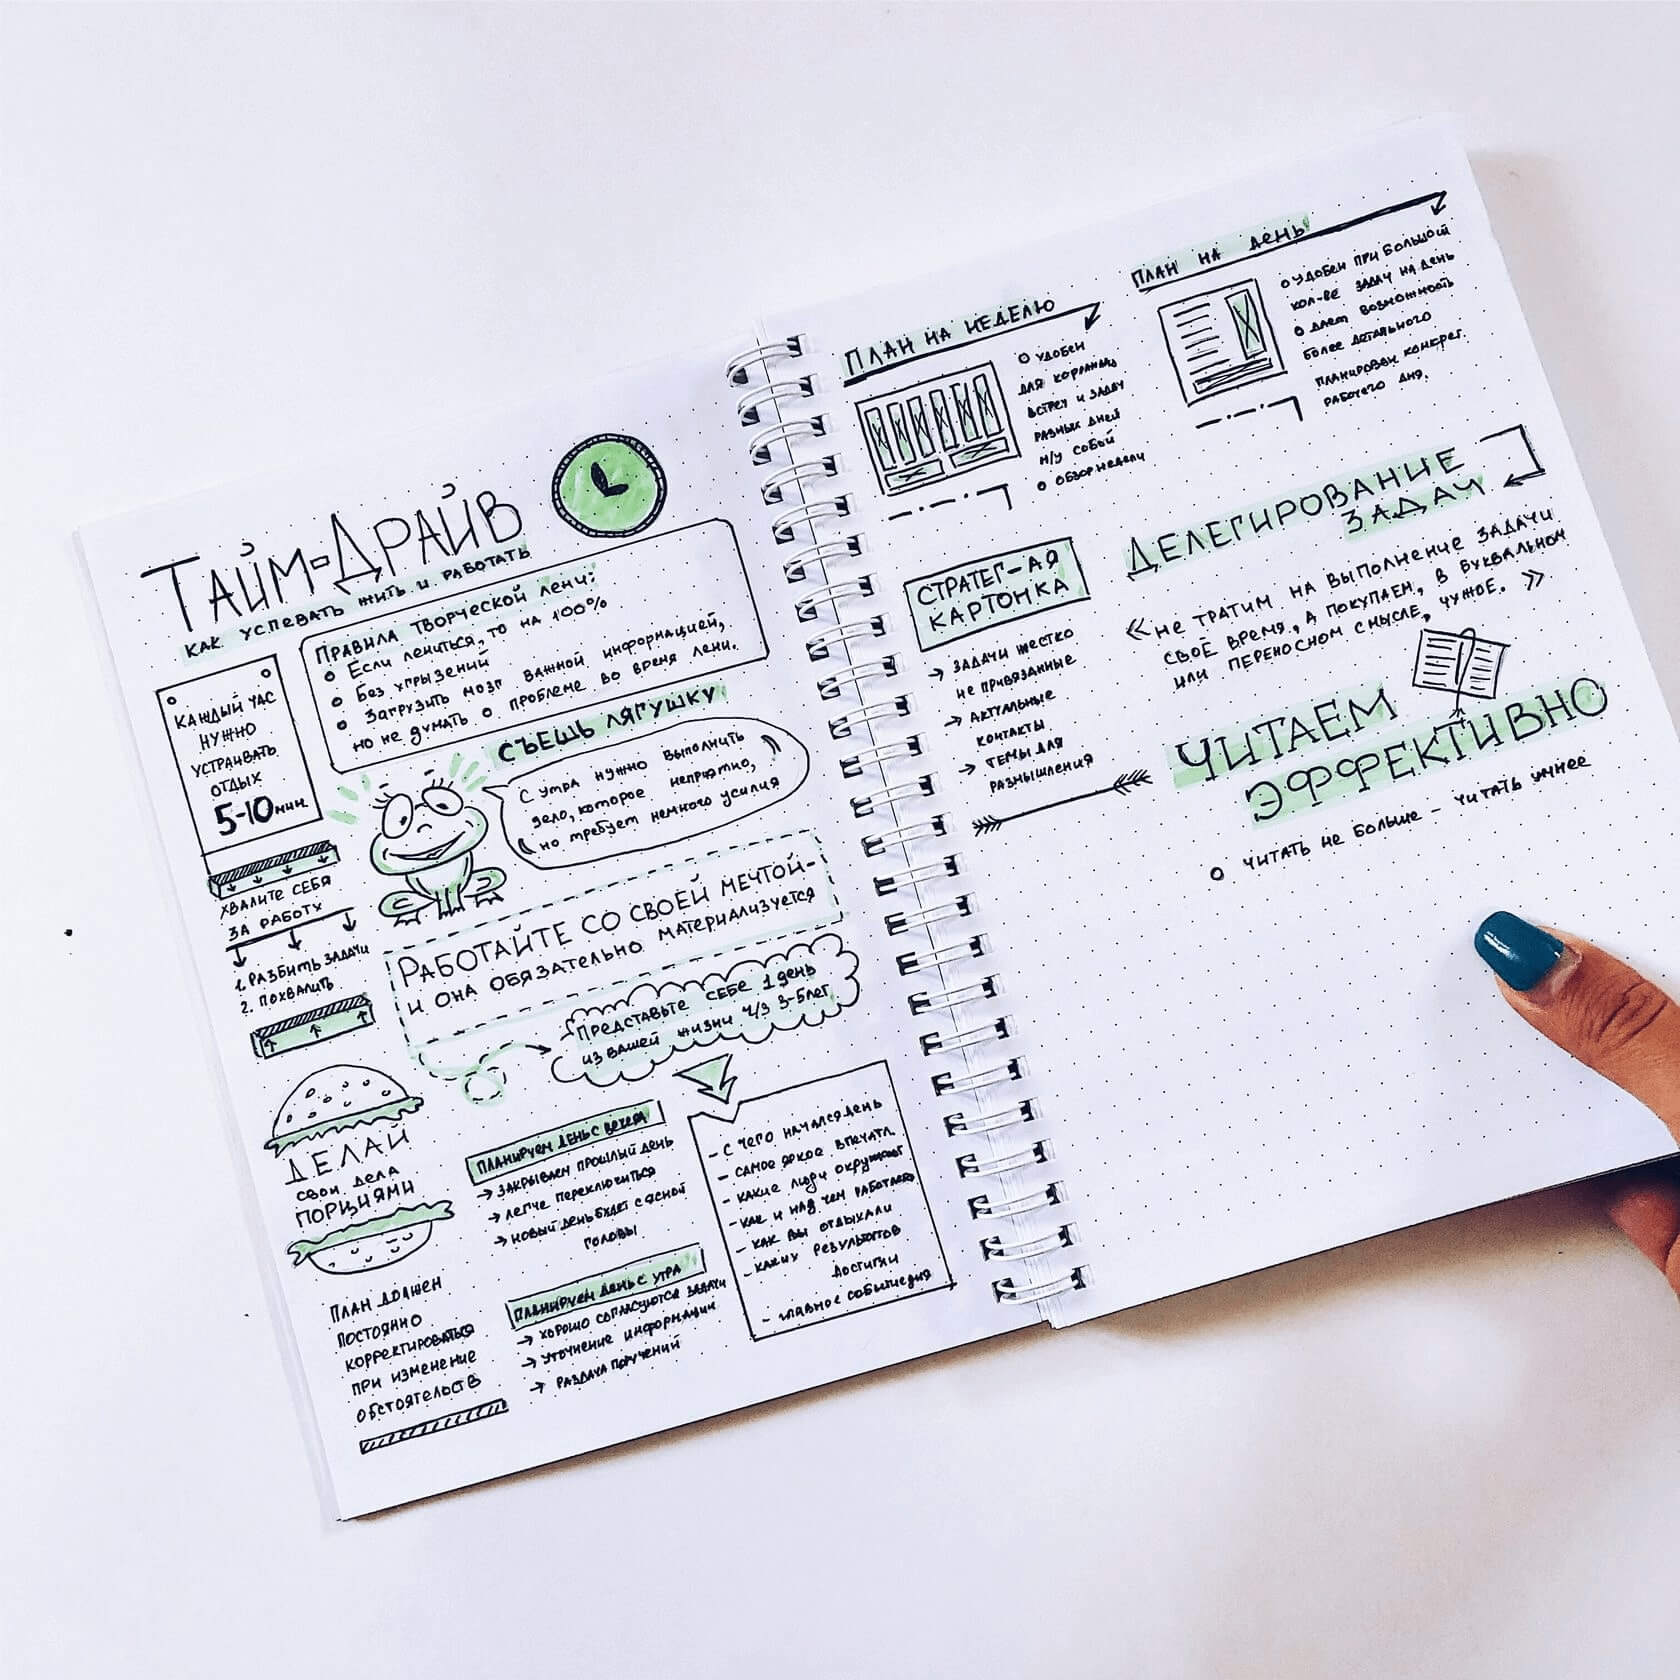 ТАЙМ-ДРАЙВ
КАК УСПЕВАТЬ ЖИТЬ И РАБОТАТЬ
ПРАВИЛА ТВОРЧЕСКОЙ ЛЕНИ:
ЕСЛИ ЛЕНИТЬСЯ, ТО НА 100%
БЕЗ УГРЫЗЕНИЙ
ЗАГРУЗИТЬ МОЗГ ВАЖНОЙ ИНФОРМАЦИЕЙ,
НО НЕ ДУМАТЬ О ПРОБЛЕМЕ ВО ВРЕМЯ ЛЕНИ.
КАЖДЫЙ ЧАС
НУЖНО
УСТРАИВАТЬ
ОТДЫХ
5-10 МИН.
СЪЕШЬ ЛЯГУШКУ
С УТРА НУЖНО ВЫПОЛНИТЬ
ДЕЛО, КОТОРОЕ НЕПРИЯТНО,
НО ТРЕБУЕТ НЕМНОГО УСИЛИЯ
ХВАЛИТЕ СЕБЯ
ЗА РАБОТУ
1. РАЗБИТЬ ЗАДАЧИ
2. ПОХВАЛИТЬ
РАБОТАЙТЕ СО СВОЕЙ МЕЧТОЙ-
И ОНА ОБЯЗАТЕЛЬНО МАТЕРИАЛИЗУЕТСЯ
ПРЕДСТАВЬТЕ СЕБЕ 1 ДЕНЬ
ИЗ ВАШЕЙ ЖИЗНИ Ч/З 3-5 ЛЕТ
ДЕЛАЙ
СВОИ ДЕЛА
ПОРЦИЯМИ
ПЛАН ДОЛЖЕН
ПОСТОЯННО
КОРРЕКТИРОВАТЬСЯ
ПРИ ИЗМЕНЕНИЕ
ОБСТОЯТЕЛЬСТВ
ПЛАНИРУЕМ ДЕНЬ С ВЕЧЕРА
→ ЗАКРЫВАЕМ ПРОШЛЫЙ ДЕНЬ
→ ЛЕГЧЕ ПЕРЕКЛЮЧИТЬСЯ
→ НОВЫЙ ДЕНЬ БУДЕТ С ЯСНОЙ
ГОЛОВЫ
ПЛАНИРУЕМ ДЕНЬ С УТРА
→ ХОРОШО СОГЛАСУЮТСЯ ЗАДАЧИ
→ УТОЧНЕНИЕ ИНФОРМАЦИИ
→ РАЗДАЧА ПОРУЧЕНИЙ
- С ЧЕГО НАЧАЛСЯ ДЕНЬ
- САМОЕ ЯРКОЕ ВПЕЧАТЛ.
- КАКИЕ ЛЮДИ ОКРУЖАЮТ
- КАК И НАД ЧЕМ РАБОТАЕТЕ
- КАК ВЫ ОТДЫХАЛИ
- КАКИХ РЕЗУЛЬТАТОВ
ДОСТИГЛИ
- ГЛАВНОЕ СОБЫТИЕ ДНЯ
ПЛАН НА НЕДЕЛЮ
УДОБЕН
ВСТРЕЧ И ЗАДАЧ
РАЗНЫХ ДНЕЙ
М/У СОБОЙ
ОБЗОР НЕДЕЛИ
ПЛАН НА ДЕНЬ
УДОБЕН ПРИ БОЛЬШОМ
КОЛ-ВЕ ЗАДАЧ НА ДЕНЬ
ДАЕТ ВОЗМОЖНОСТЬ
БОЛЕЕ ДЕТАЛЬНОГО
ПЛАНИРОВАН. КОНКРЕТ.
РАБОЧЕГО ДНЯ.
СТРАТЕГ-АЯ
КАРТОНКА
→ ЗАДАЧИ ЖЕСТКО
НЕ ПРИВЯЗАННЫЕ
→ АКТУАЛЬНЫЕ
КОНТАКТЫ
→ ТЕМЫ ДЛЯ
РАЗМЫШЛЕНИЯ
ДЕЛЕГИРОВАНИЕ
ЗАДАЧ
«НЕ ТРАТИМ НА ВЫПОЛНЕНИЕ ЗАДАЧИ
СВОЁ ВРЕМЯ, А ПОКУПАЕМ, В БУКВАЛЬНОМ
ИЛИ ПЕРЕНОСНОМ СМЫСЛЕ, ЧУЖОЕ.»
ЧИТАЕМ
ЭФФЕКТИВНО
ЧИТАТЬ НЕ БОЛЬШЕ - ЧИТАТЬ УМНЕЕ